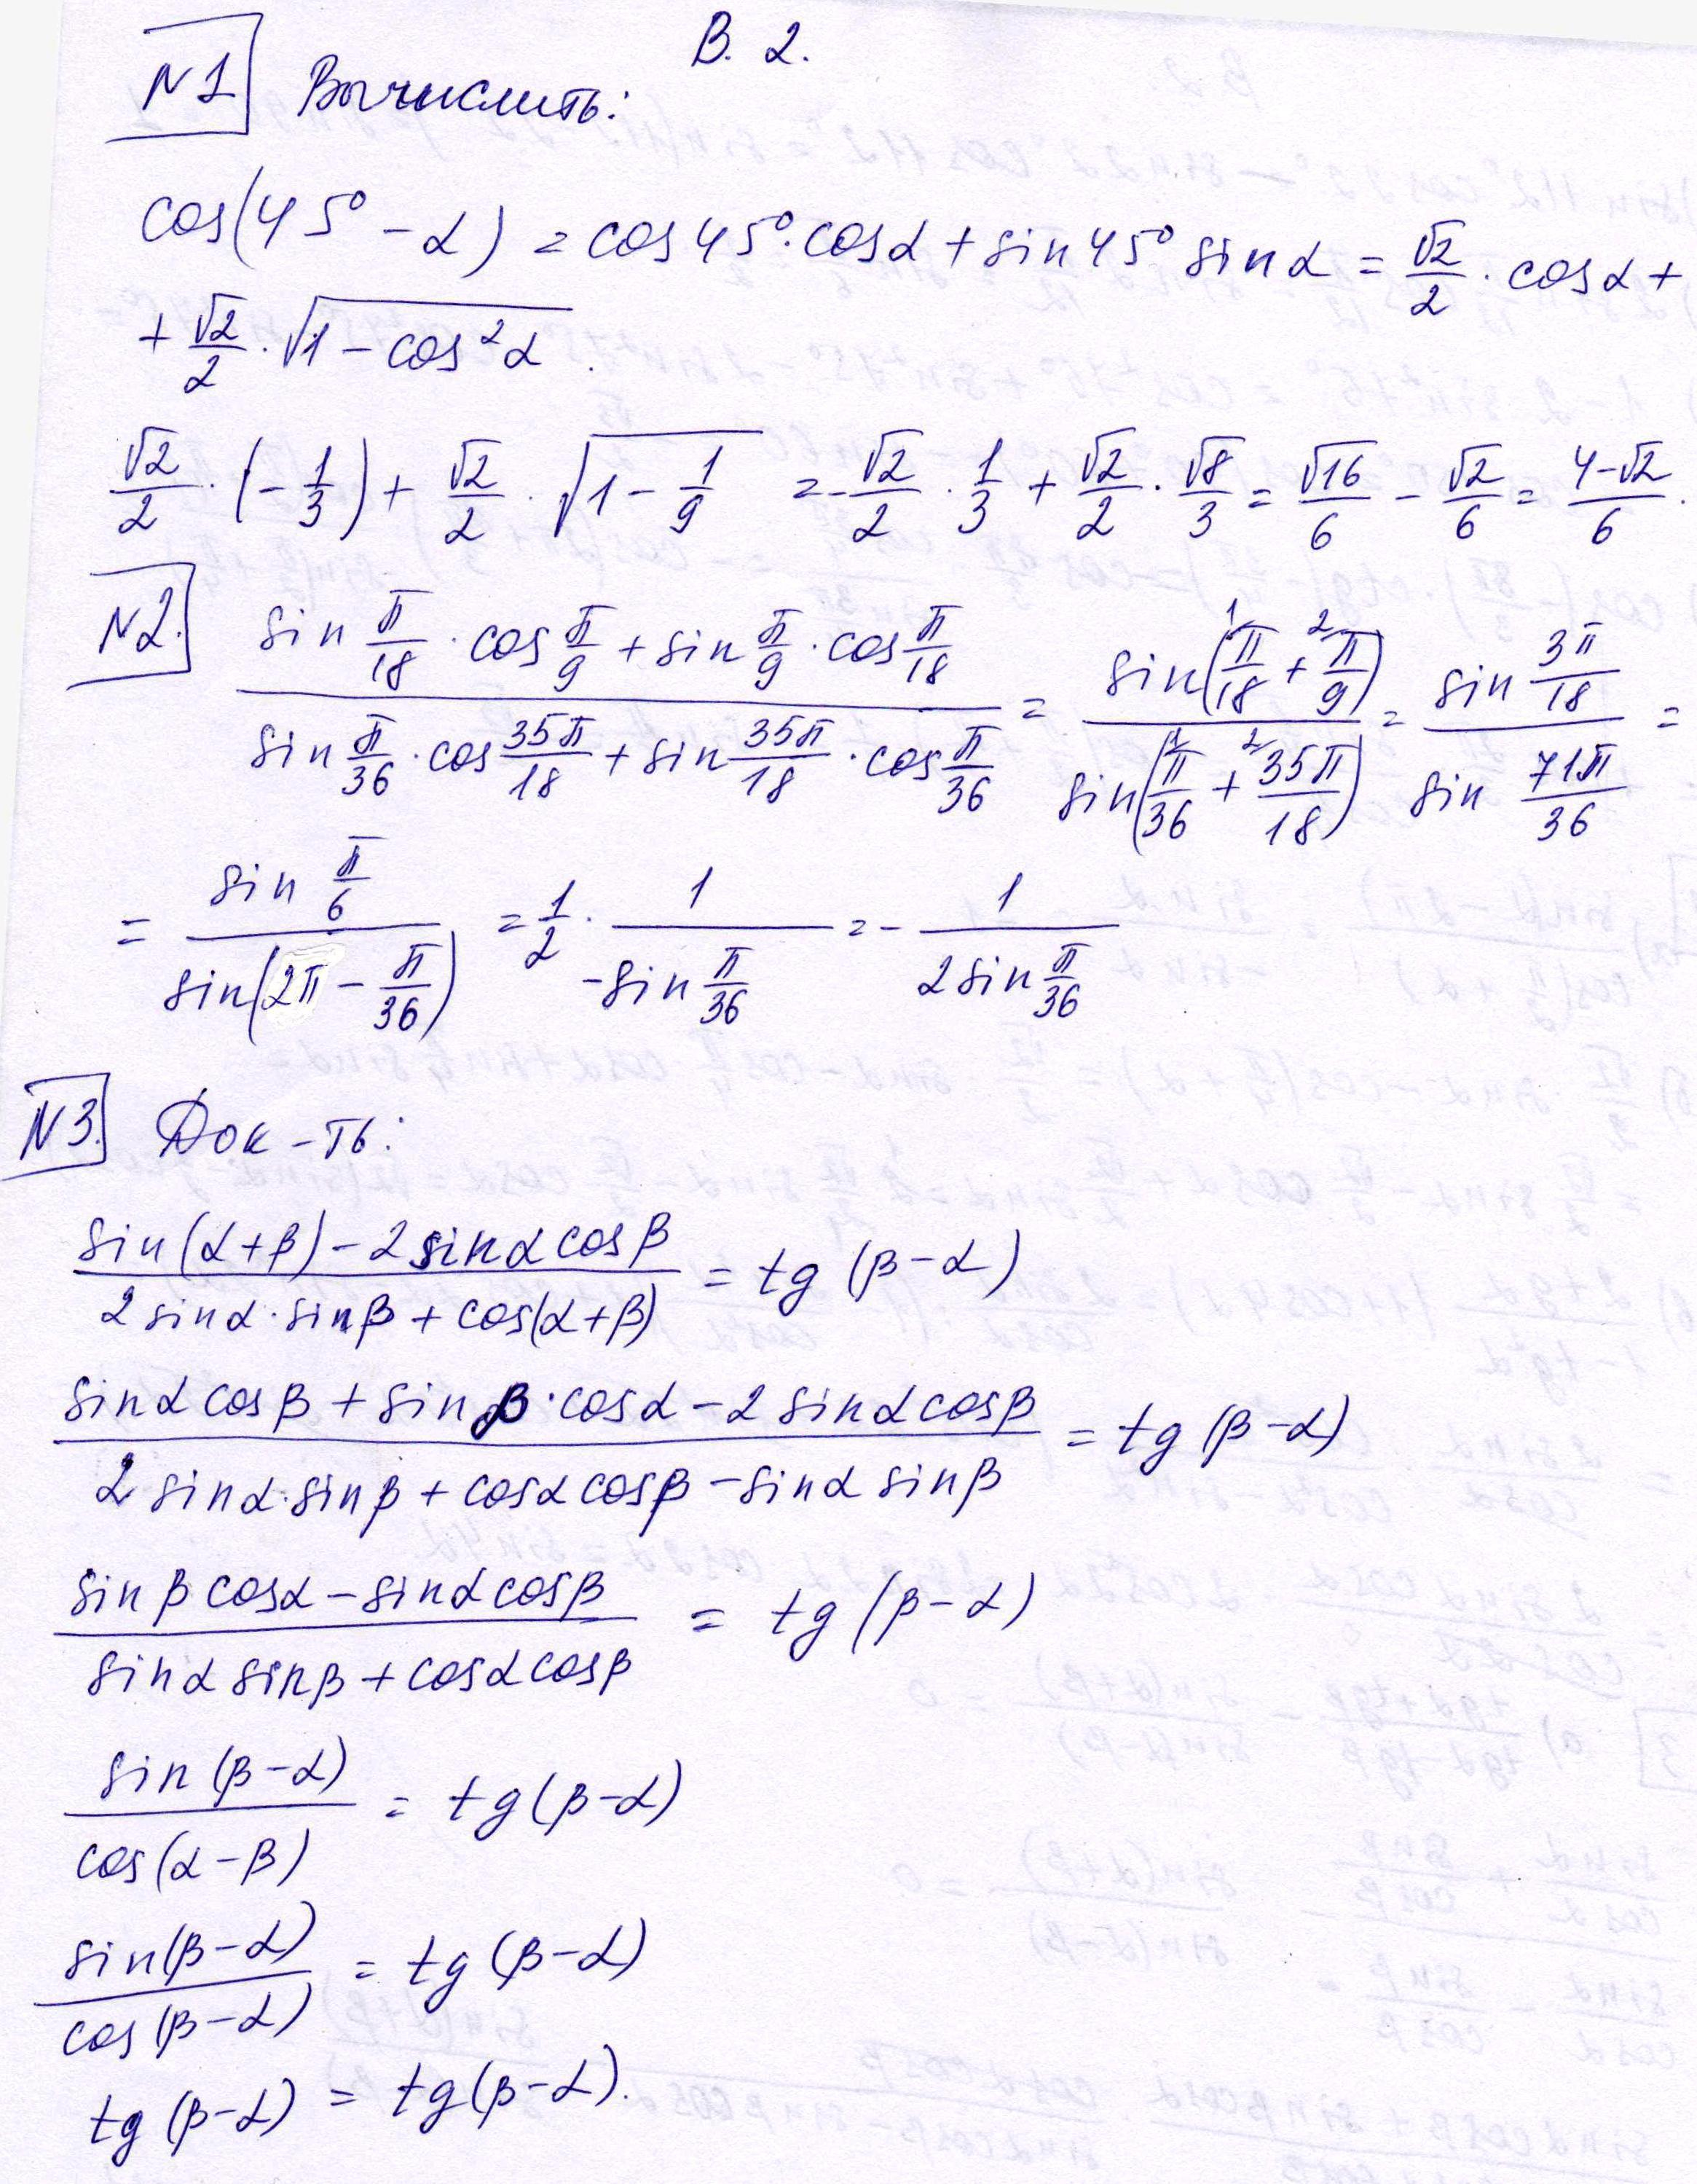 В. 2.
N1 Вычислить:
cos(45° - α) = cos45°·cosα + sin45° sinα = √2/2 · cosα +
+ √2/2 · √(1 - cos²α).
√2/2 · (-1/3) + √2/2 · √(1 - 1/9) = -√2/2 · 1/3 + √2/2 · √8/3 = √16/6 - √2/6 = (4-√2)/6.
N2. (sin π/18 · cos π/9 + sin π/9 · cos π/18)/(sin π/36 · cos 35π/18 + sin 35π/18 · cos π/36) = sin(π/18 + π/9)/sin(π/36 + 35π/18) = sin 3π/18 / sin 71π/36 =
= sin π/6 / sin(2π - π/36) = 1/2 · 1/(-sin π/36) = - 1/(2sin π/36)
N3. Док-ть:
(sin(α+β) - 2sinα cosβ)/(2sinα·sinβ + cos(α+β)) = tg(β-α)
(sinα cosβ + sinβ·cosα - 2sinα cosβ)/(2sinα·sinβ + cosα cosβ - sinα sinβ) = tg(β-α)
(sinβ cosα - sinα cosβ)/(sinα sinβ + cosα cosβ) = tg(β-α)
sin(β-α)/cos(α-β) = tg(β-α)
sin(β-α)/cos(β-α) = tg(β-α)
tg(β-α) = tg(β-α).